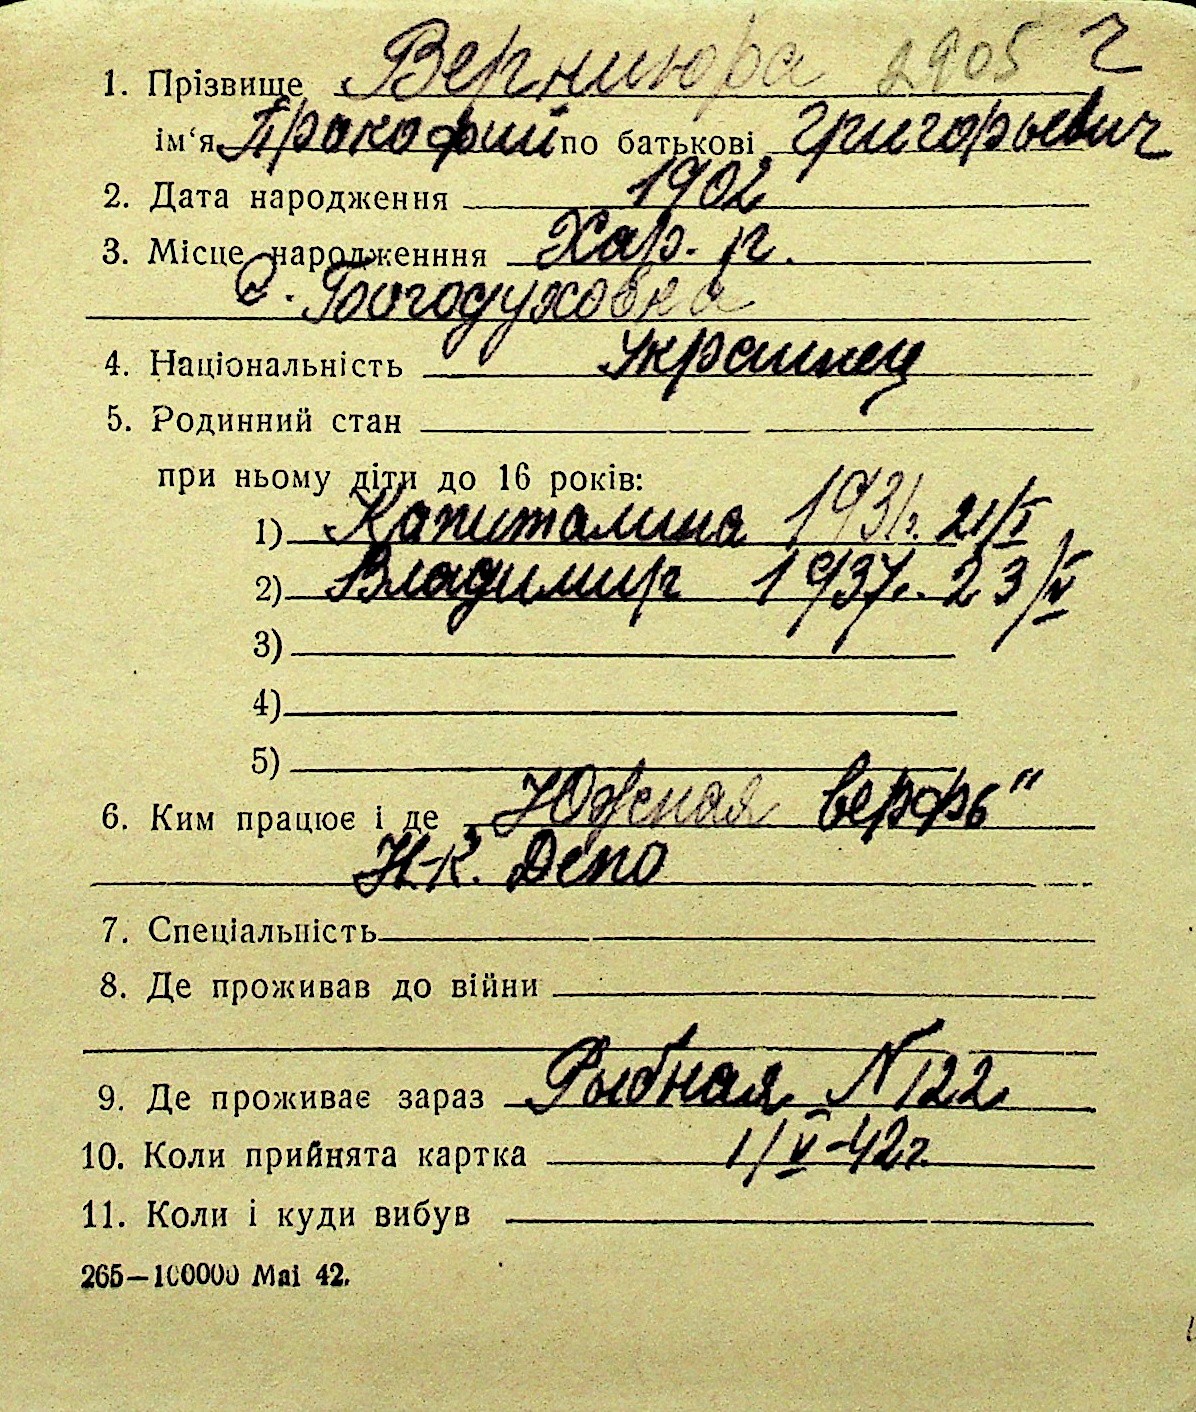 1. Прізвище Вернигора 2905 г
ім‘я Прокофий по батькові Григорьевич
2. Дата народження 1902
3. Місце народженння Хар. г.
с. Богодуховка
4. Національність Украинец
5. Родинний стан
при ньому діти до 16 років:
1) Капиталина 1931г. 21/I
2) Владимир 1937г. 23/IV
3)
4)
5)
6. Ким працює і де „Южная верфь"
Н-К. Депо
7. Спеціальність
8. Де проживав до війни
9. Де проживає зараз Рыбная N 122
10. Коли прийнята картка 1/V-42г.
11. Коли і куди вибув
265—100000 Маі 42.